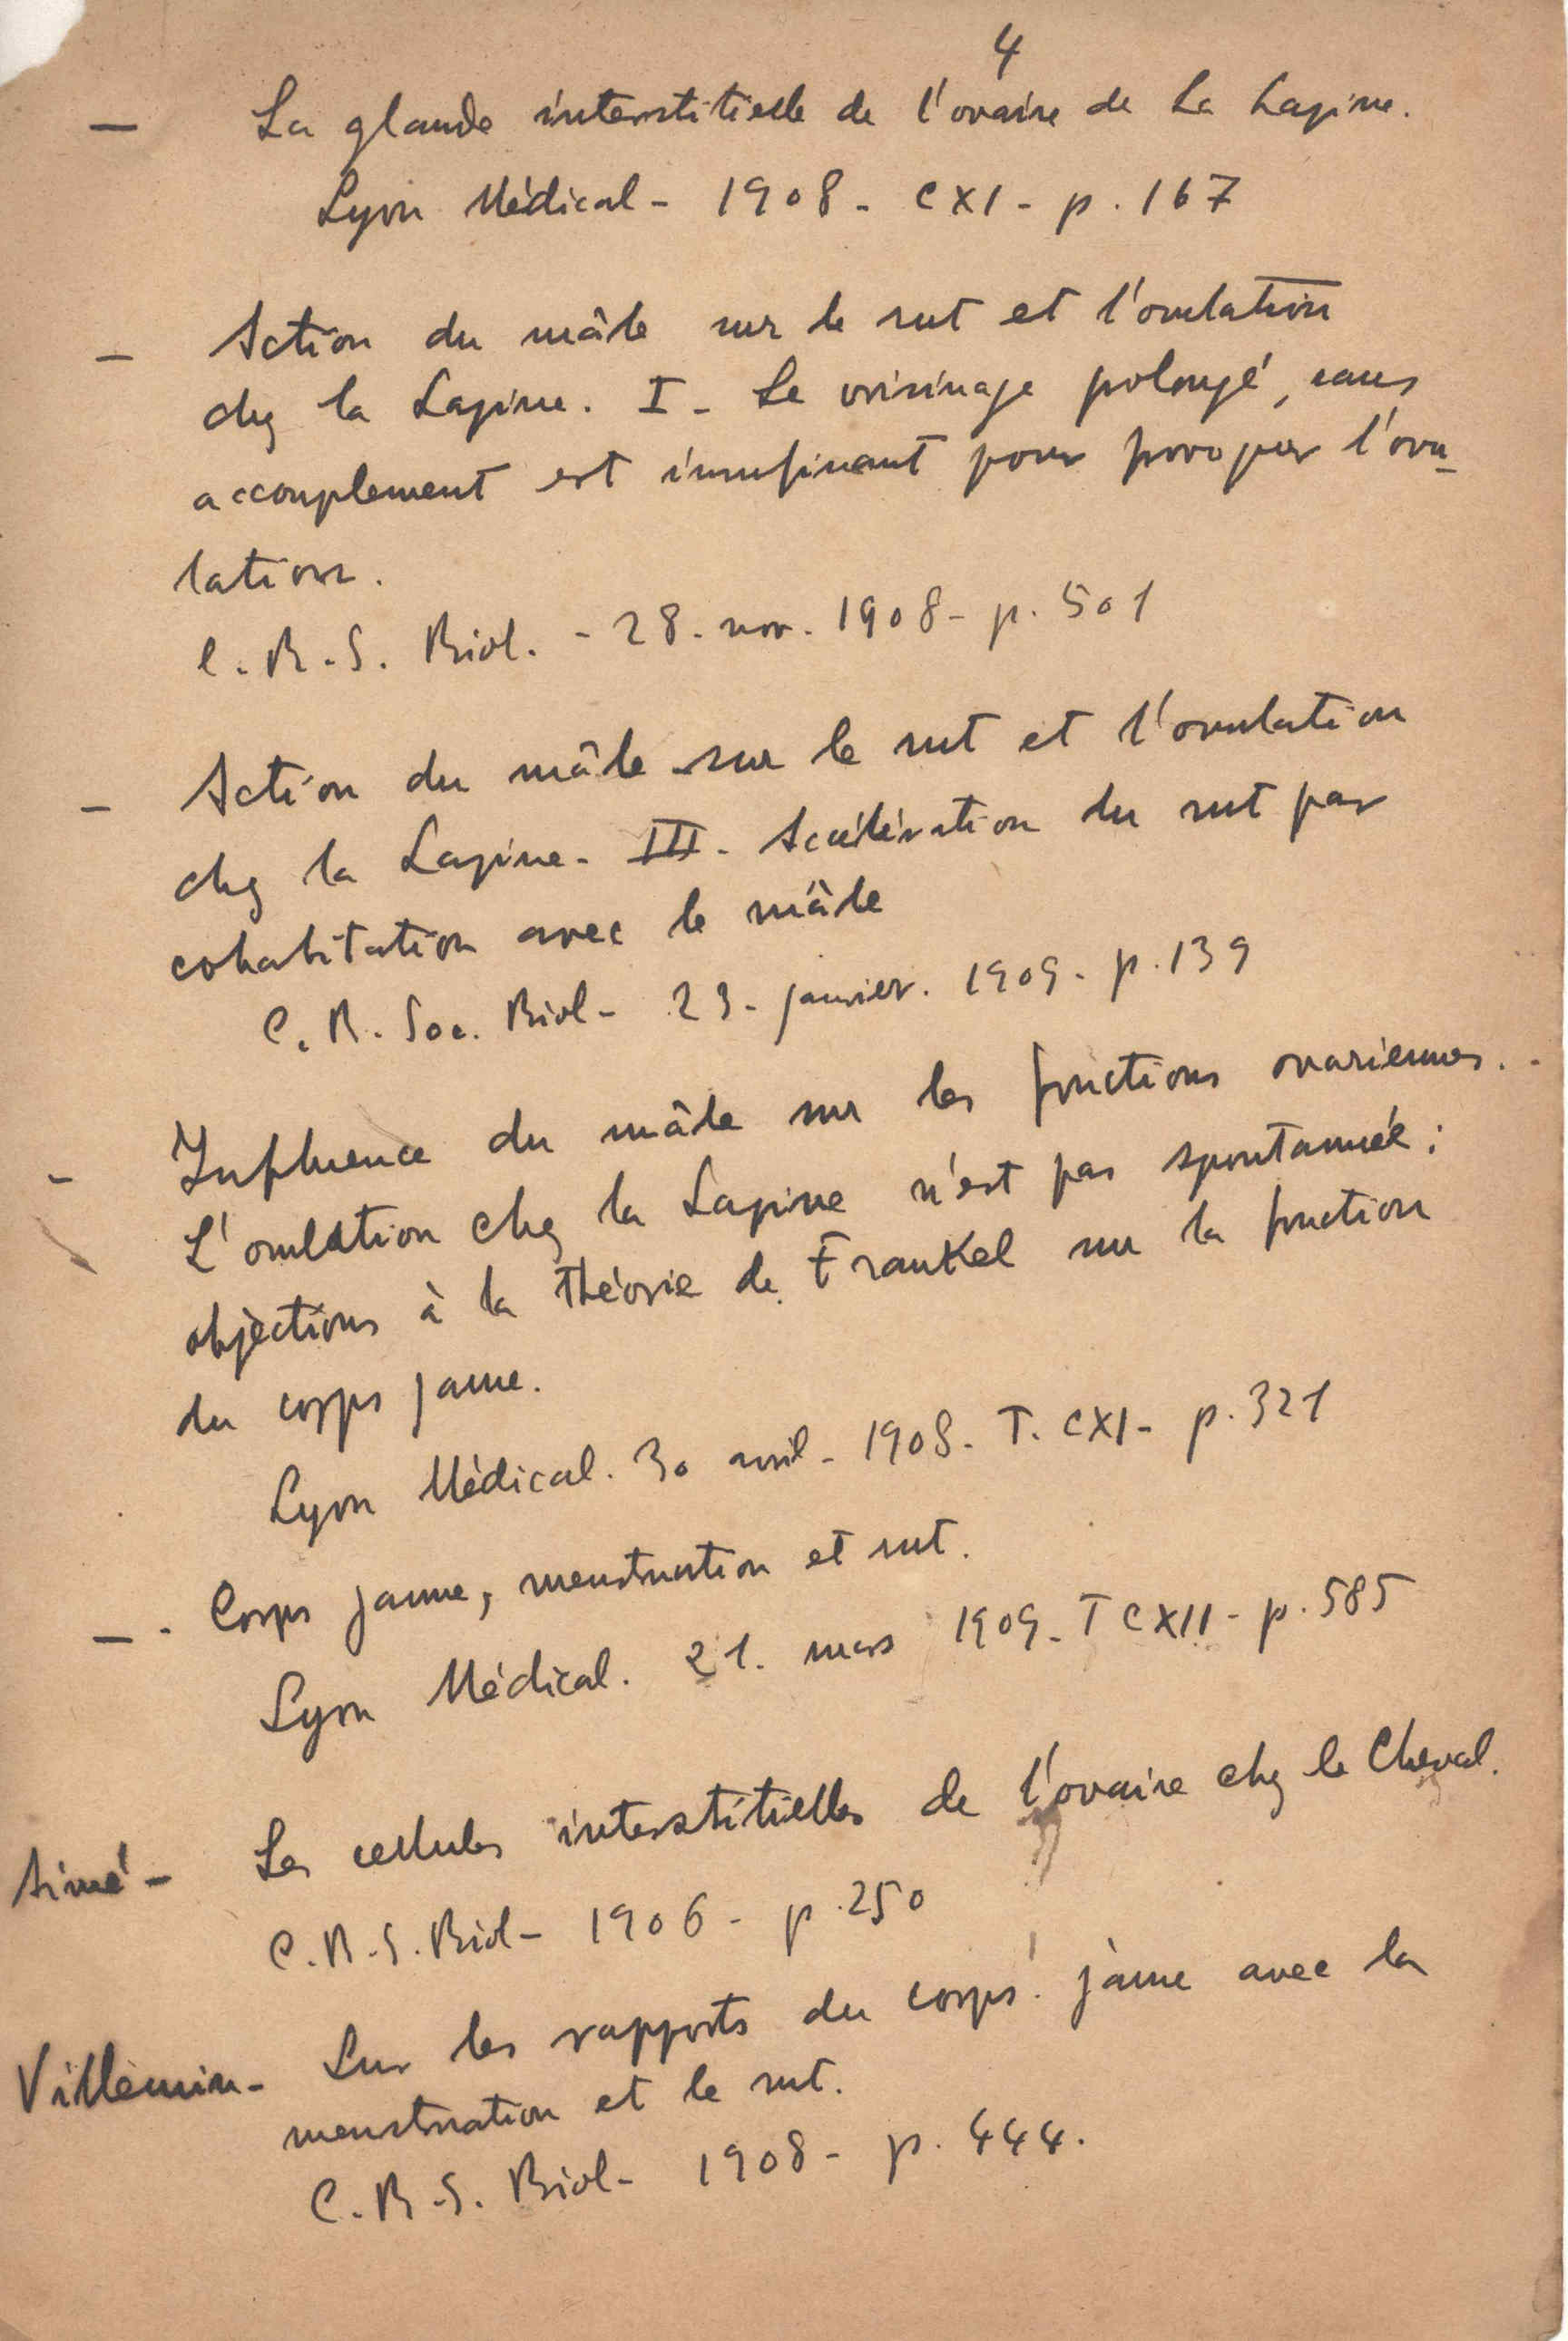 4
— La glande interstitielle de l'ovaire de la Lapine.
Lyon Médical - 1908 - CXI - p. 167
— Action du mâle sur le rut et l'ovulation
chez la Lapine. I - Le voisinage polongé, sans
accouplement est insuffisant pour provoquer l'ovu-
lation.
C. R. S. Biol. - 28. nov. 1908 - p. 501
— Action du mâle sur le rut et l'ovulation
chez la Lapine - III - Accélération du rut par
cohabitation avec le mâle
C. R. Soc. Biol - 23 - janvier. 1909 - p. 139
- Influence du mâle sur les fonctions ovariennes.
L'ovulation chez la Lapine n'est pas spontannée :
objections à la théorie de Frankel sur la fonction
du corps jaune.
Lyon Médical. 30 avril - 1908 - T. CXI - p. 321
— Corps jaune, menstruation et rut.
Lyon Médical. 21. mars 1909 - T CXII - p. 585
Aimé - Les cellules interstitielles de l'ovaire chez le Cheval.
C. R. S. Biol - 1906 - p. 250
Villemin - Sur les rapports du corps jaune avec la
menstruation et le rut.
C. R. S. Biol - 1908 - p. 444.